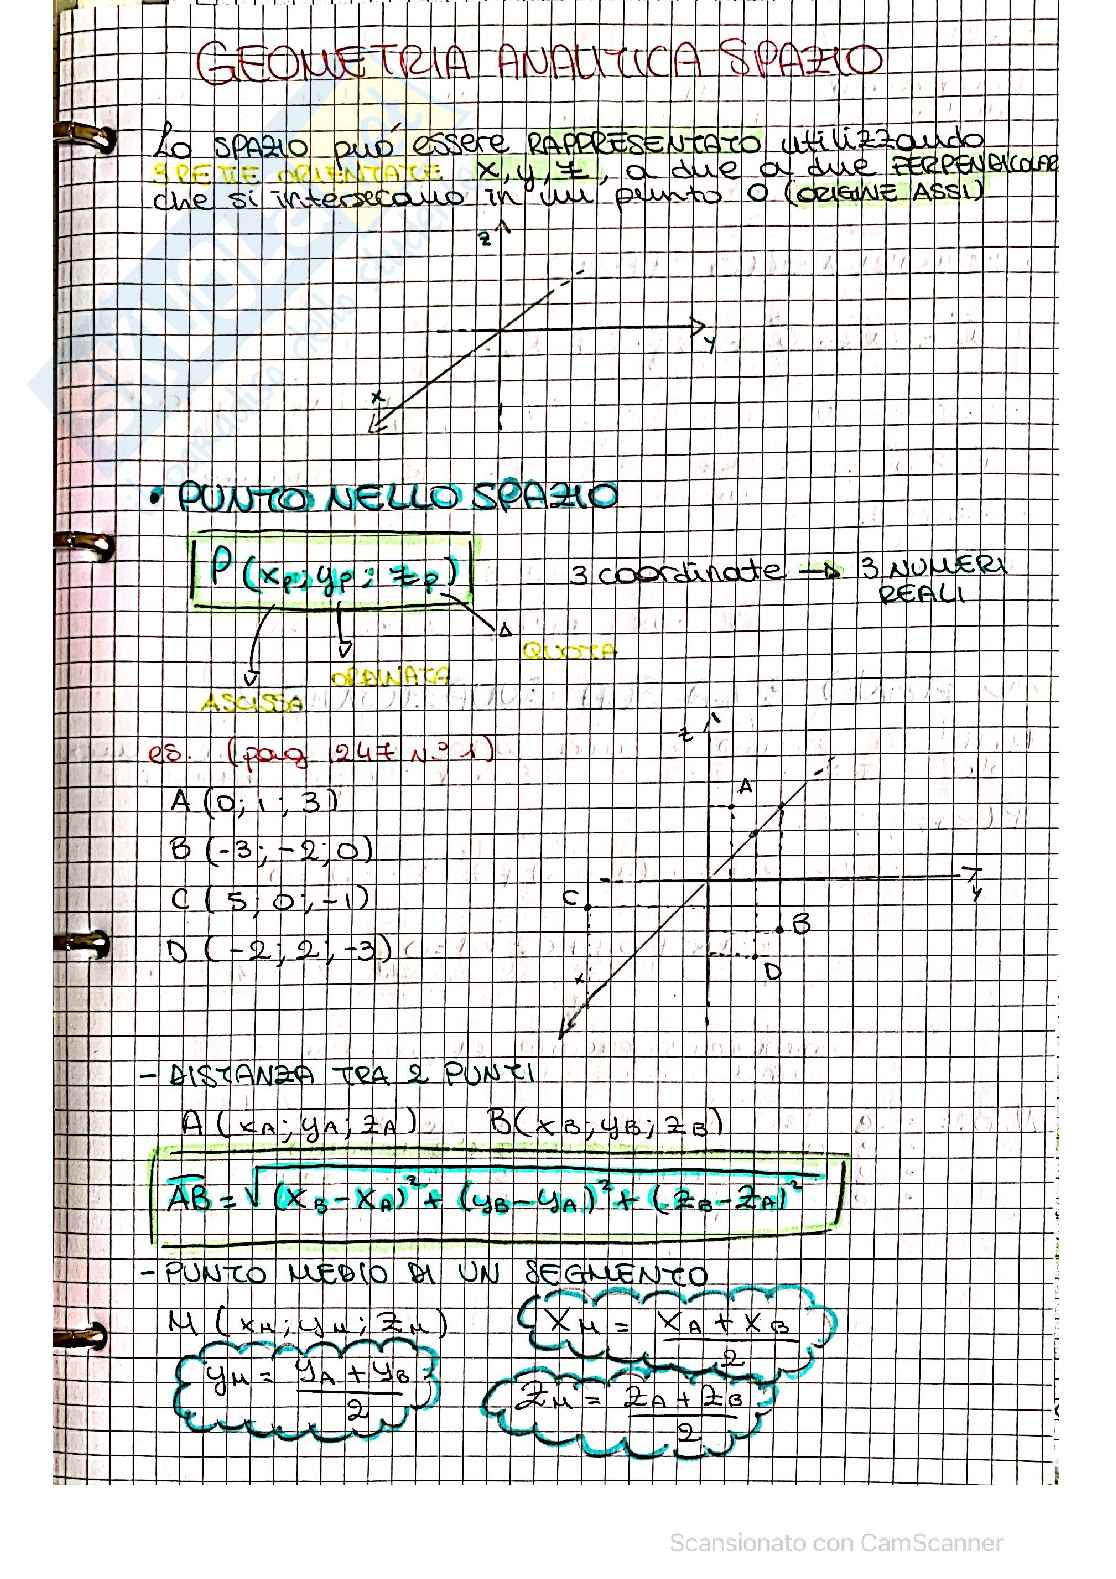 GEOMETRIA ANALITICA SPAZIO
Lo SPAZIO può essere RAPPRESENTATO utilizzando
3 RETTE ORIENTATE x, y, z, a due a due PERPENDICOLARI
che si intersecano in un punto O (ORIGINE ASSI)
z
y
x
• PUNTO NELLO SPAZIO
P (xP; yP; zP)
3 coordinate → 3 NUMERI
REALI
QUOTA
ORDINATA
ASCISSA
es. (pag 247 N° 1)
A (0; 1; 3)
B (-3; -2; 0)
C (5; 0; -1)
D (-2; 2; -3)
z
A
y
C
B
D
x
- DISTANZA TRA 2 PUNTI
A (xA; yA; zA) B(xB; yB; zB)
AB = √(xB - xA)² + (yB - yA)² + (zB - zA)²
- PUNTO MEDIO DI UN SEGMENTO
M (xM; yM; zM) xM = xA + xB / 2
yM = yA + yB / 2 zM = zA + zB / 2
Scansionato con CamScanner